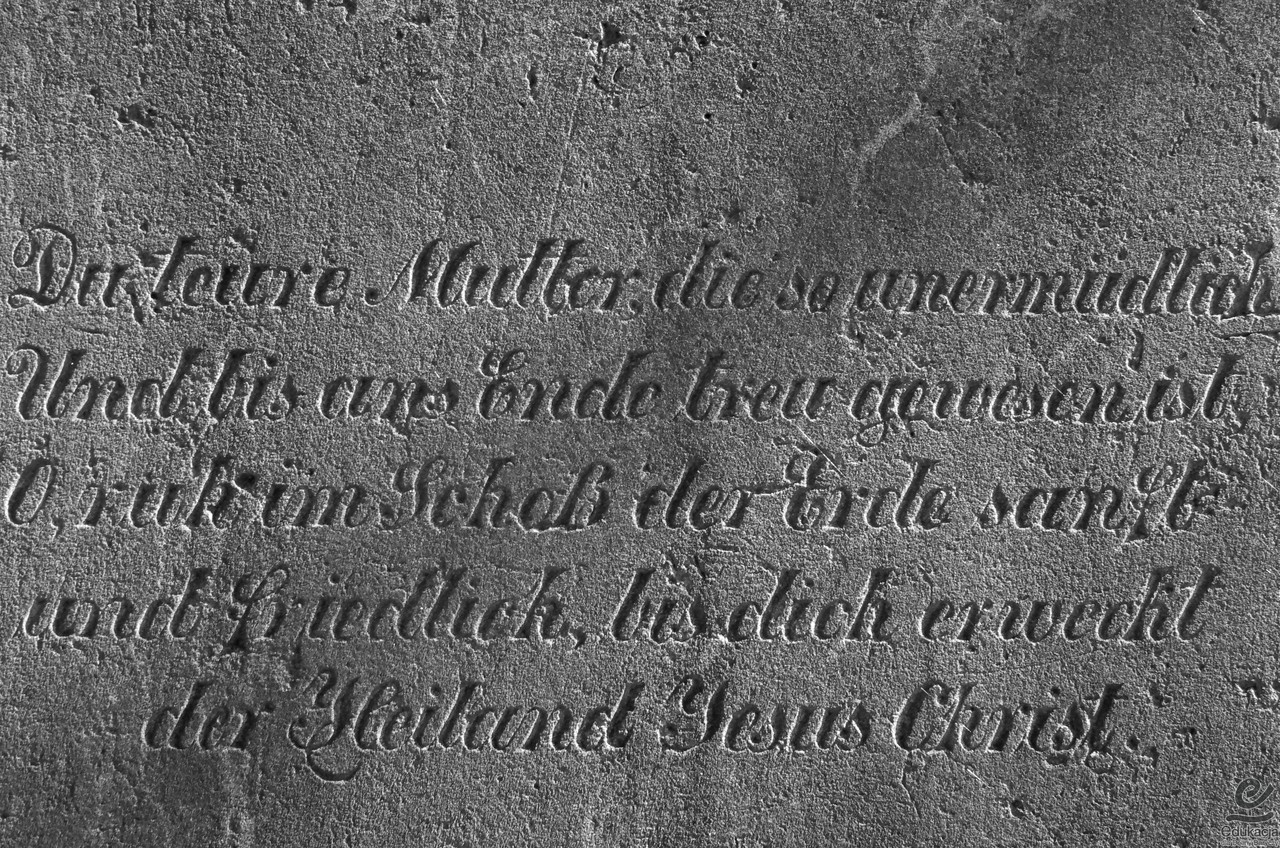 Du, teure Mutter, die so unermüdlich
Und bis ans Ende treu gewesen ist,
O, ruh' im Schoß der Erde sanft
und friedlich, bis dich erweckt
der Heiland Jesus Christ.
edukacja